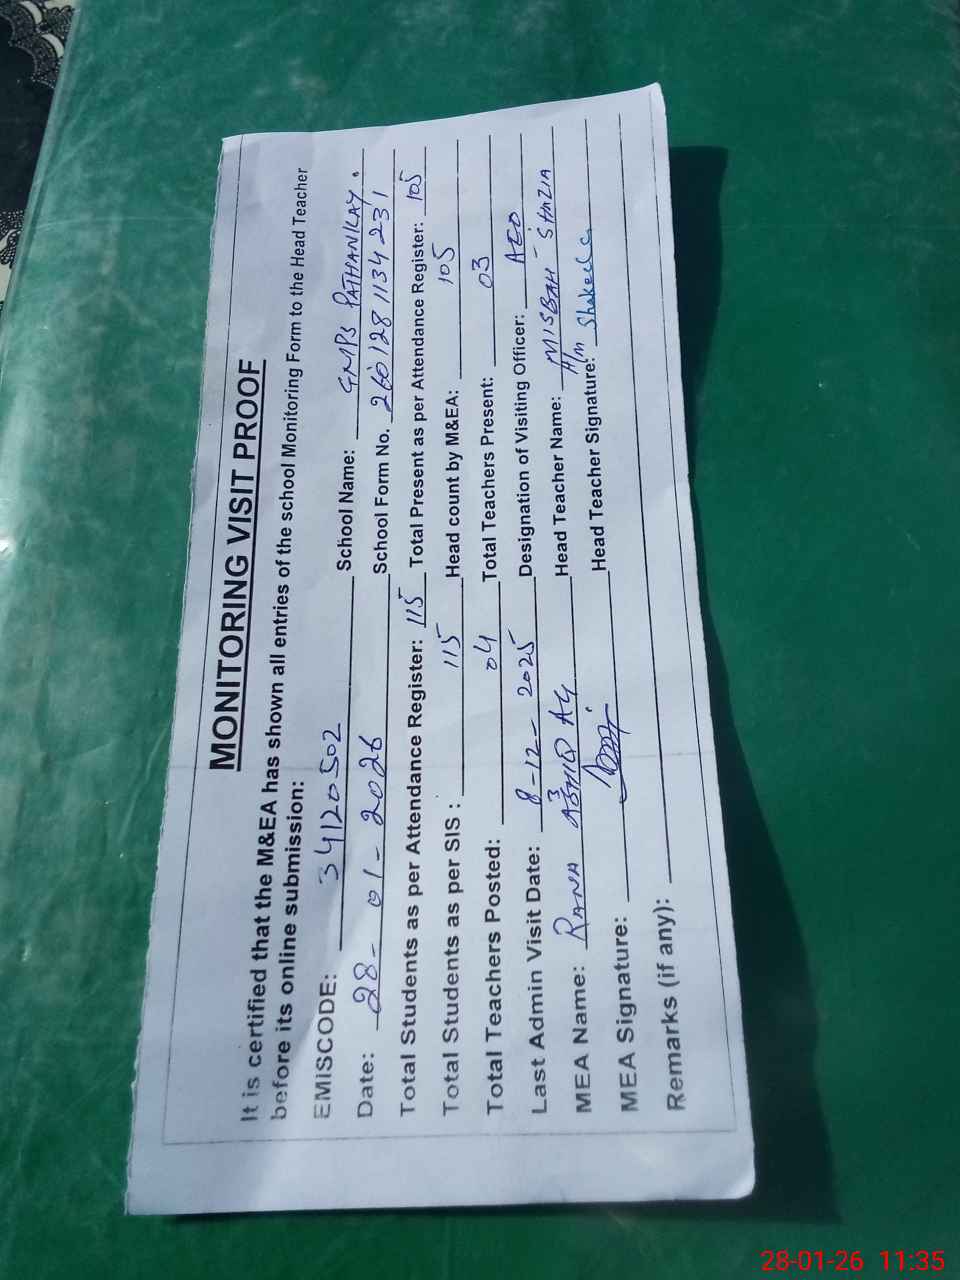 MONITORING VISIT PROOF
It is certified that the M&EA has shown all entries of the school Monitoring Form to the Head Teacher
before its online submission:
EMISCODE: 34120502 School Name: GMPS PATHANKAY.
Date: 28-01-2026 School Form No. 260128 1134 231
Total Students as per Attendance Register: 115 Total Present as per Attendance Register: 105
Total Students as per SIS : 115 Head count by M&EA: 105
Total Teachers Posted: 04 Total Teachers Present: 03
Last Admin Visit Date: 8-12-2025 Designation of Visiting Officer: AEO
MEA Name: RANA Head Teacher Name: MISBAH SHAZIA
MEA Signature: Head Teacher Signature: H/m Shakeela
Remarks (if any):
28-01-26 11:35